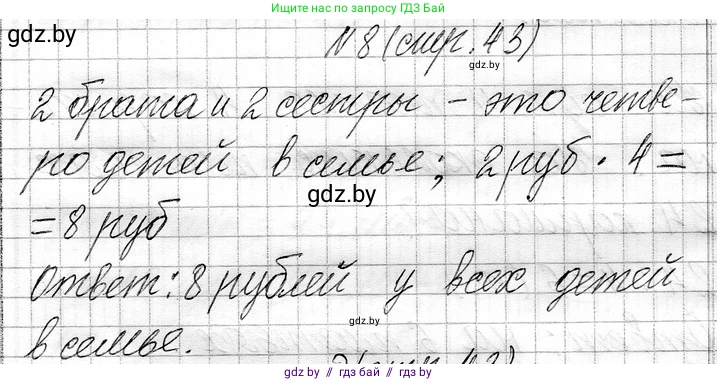 Ищите нас по запросу ГДЗ Бай
gdz.by
N8 (стр. 43)
gdz.by
2 брата и 2 сестры – это четве-
ро детей в семье; 2 руб · 4 =
gdz.by
= 8 руб
Ответ: 8 рублей у всех детей
gdz.by
в семье.
gdz.by // гдз бай // gdz.by